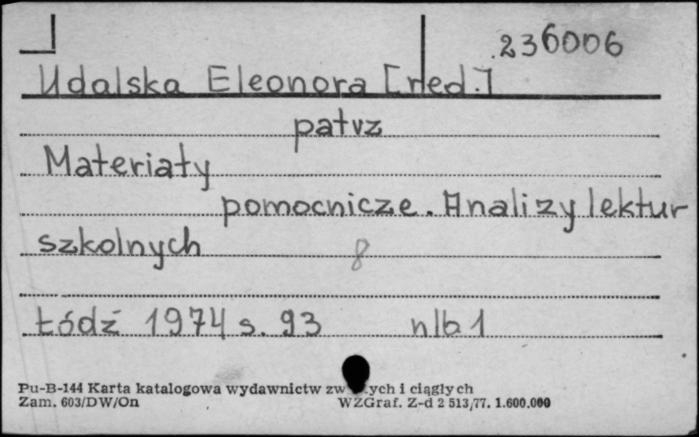 236006
Udalska Eleonora [red.]
patrz
Materiały
pomocnicze. Analizy lektur
szkolnych 8
Łódź 1974 s. 93 nlb 1
Pu-B-144 Karta katalogowa wydawnictw zw tych i ciągłych
Zam. 603/DW/On WZGraf. Z-d 2 513/77. 1.600.000